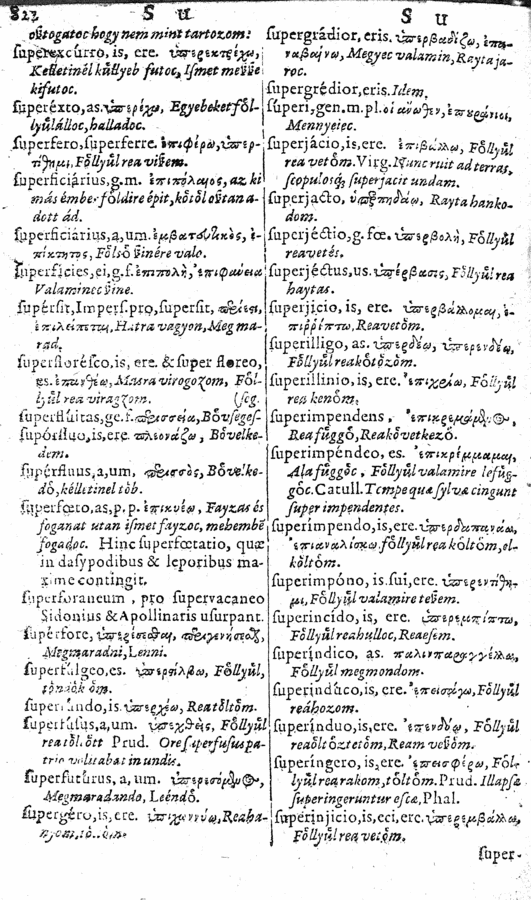 822 S U
oſtogatoc hogy nem mint tartozom:
ſuperexcurro, is, ere. ὑπερεκτρέχω,
Kelletinél küllyeb futoc, Iſmet meſſe
kifutoc.
ſuperéxto, as. ὑπερέχω, Egyebeket föl-
lyülálloc, halladoc.
ſuperfero, ſuperferre. ἐπιφέρω, ὑπερ-
τίθημι, Föllyül rea viſem.
ſuperficiárius, g.m. ἐπιπόλαιος, az ki
más ember földire épit, kötöl
adott ád.
ſuperficiarius, a, um.
Fölſö ſinére valo.
ſuperficies, ei, g.f. ἐπιπολὴ, ἐπιφάνεια
Valaminec ſine.
ſupérſit, Imperſ. pro, ſuperſit,
Hatra vagyon, Meg ma-
rad.
ſuperfloréſco, is, ere. & ſuper floreo,
es. ἐπανθέω, Maura virogozom, Föl-
lyül rea viragzom. (ſég.
ſuperflúitas, ge. f. περισσεία, Böuſégeſ-
ſupérfluo, is, ere. πλεονάζω, Böuelke-
dem.
ſupérfluus, a, um, περισσὸς, Böuelke-
dö, kélletinel töb.
ſuperfœto, as, p. p. ἐπικυέω, Fayzas és
foganat utan iſmet fayzoc, mehembe
fogadoc. Hinc ſuperfœtatio, quæ
in daſypodibus & leporibus ma-
xime contingit.
ſuperforaneum, pro ſupervacaneo
Sidonius & Apollinaris uſurpant.
ſupérfore,
Megmaradni, Lenni.
ſuperfúlgeo, es. ὑπερστίλβω, Föllyül,
ſuperfundo, is. ὑπερχέω, Rea töltöm.
ſuperfuſus, a, um. ὑπερχθεὶς, Föllyül
rea töltött Prud. Ore ſuperfuſus pa-
trio volitabat in undis.
ſuperfuturus, a, um.
Megmaradando, Leéndö.
ſupergéro, is, ere. Rea ha-
S U
ſupergrádior, eris. ὑπερβαδίζω, ἐπα-
ναβαίνω, Megyec valamin, Rayta ja-
roc.
ſupergrédior, eris. Idem.
ſuperi, gen. m. pl. οἱ ἄνωθεν, ἐπουράνιοι,
Mennyeiec.
ſuperjácio, is, ere. ἐπιβάλλω, Föllyül
rea vetöm. Virg. Nunc ruit ad terras,
ſcopulosq; ſuperjacit undam.
ſuperjacto, ὑπερπηδάω, Rayta hanko-
dom.
ſuperjéctio, g. fœ. ὑπερβολὴ, Föllyül
rea vetés.
ſuperjéctus, us. ὑπέρβασις, Föllyül rea
haytas.
ſuperjicio, is, ere. ὑπερβάλλομαι, ἐ-
πιῤῥίπτω, Rea vetöm.
ſuperilligo, as. ὑπερδέω, ὑπερενδέω,
Föllyül rea kötözöm.
ſuperillinio, is, ere. ἐπιχρίω, Föllyül
rea kenöm.
ſuperimpendens,
Rea függö, Rea következö.
ſuperimpéndeo, es. ἐπικρέμμαμαι,
Ala függöc, Föllyül valamire leſüg-
göc. Catull. Tempe quæ ſylvæ cingunt
ſuper impendentes.
ſuperímpendo, is, ere. ὑπερδαπανάω,
ἐπιαναλίσκω föllyül rea költöm, el-
költöm.
ſuperimpóno, is. ſui, ere. ὑπερεντίθη-
μι, Föllyül valamire teſem.
ſuperincído, is, ere, ὑπερεμπίπτω,
Föllyül rea hulloc, Rea eſem.
ſuperíndico, as. παλινπαραγγέλλω,
Föllyül megmondom.
ſuperindúco, is, ere. ἐπεισάγω, Föllyül
rea hozom.
ſuperínduo, is, ere. ἐπενδύω, Föllyül
rea öltöztetöm, Ream veſöm.
ſuperíngero, is, ere. ἐπεισφέρω, Föl-
lyül rea rakom, töltöm. Prud. Illapſa
ſuperingeruntur eſcæ, Phal.
ſuperinjício, is, eci, ere. ὑπερεμβάλλω,
Föllyül rea vetöm.
ſuper-